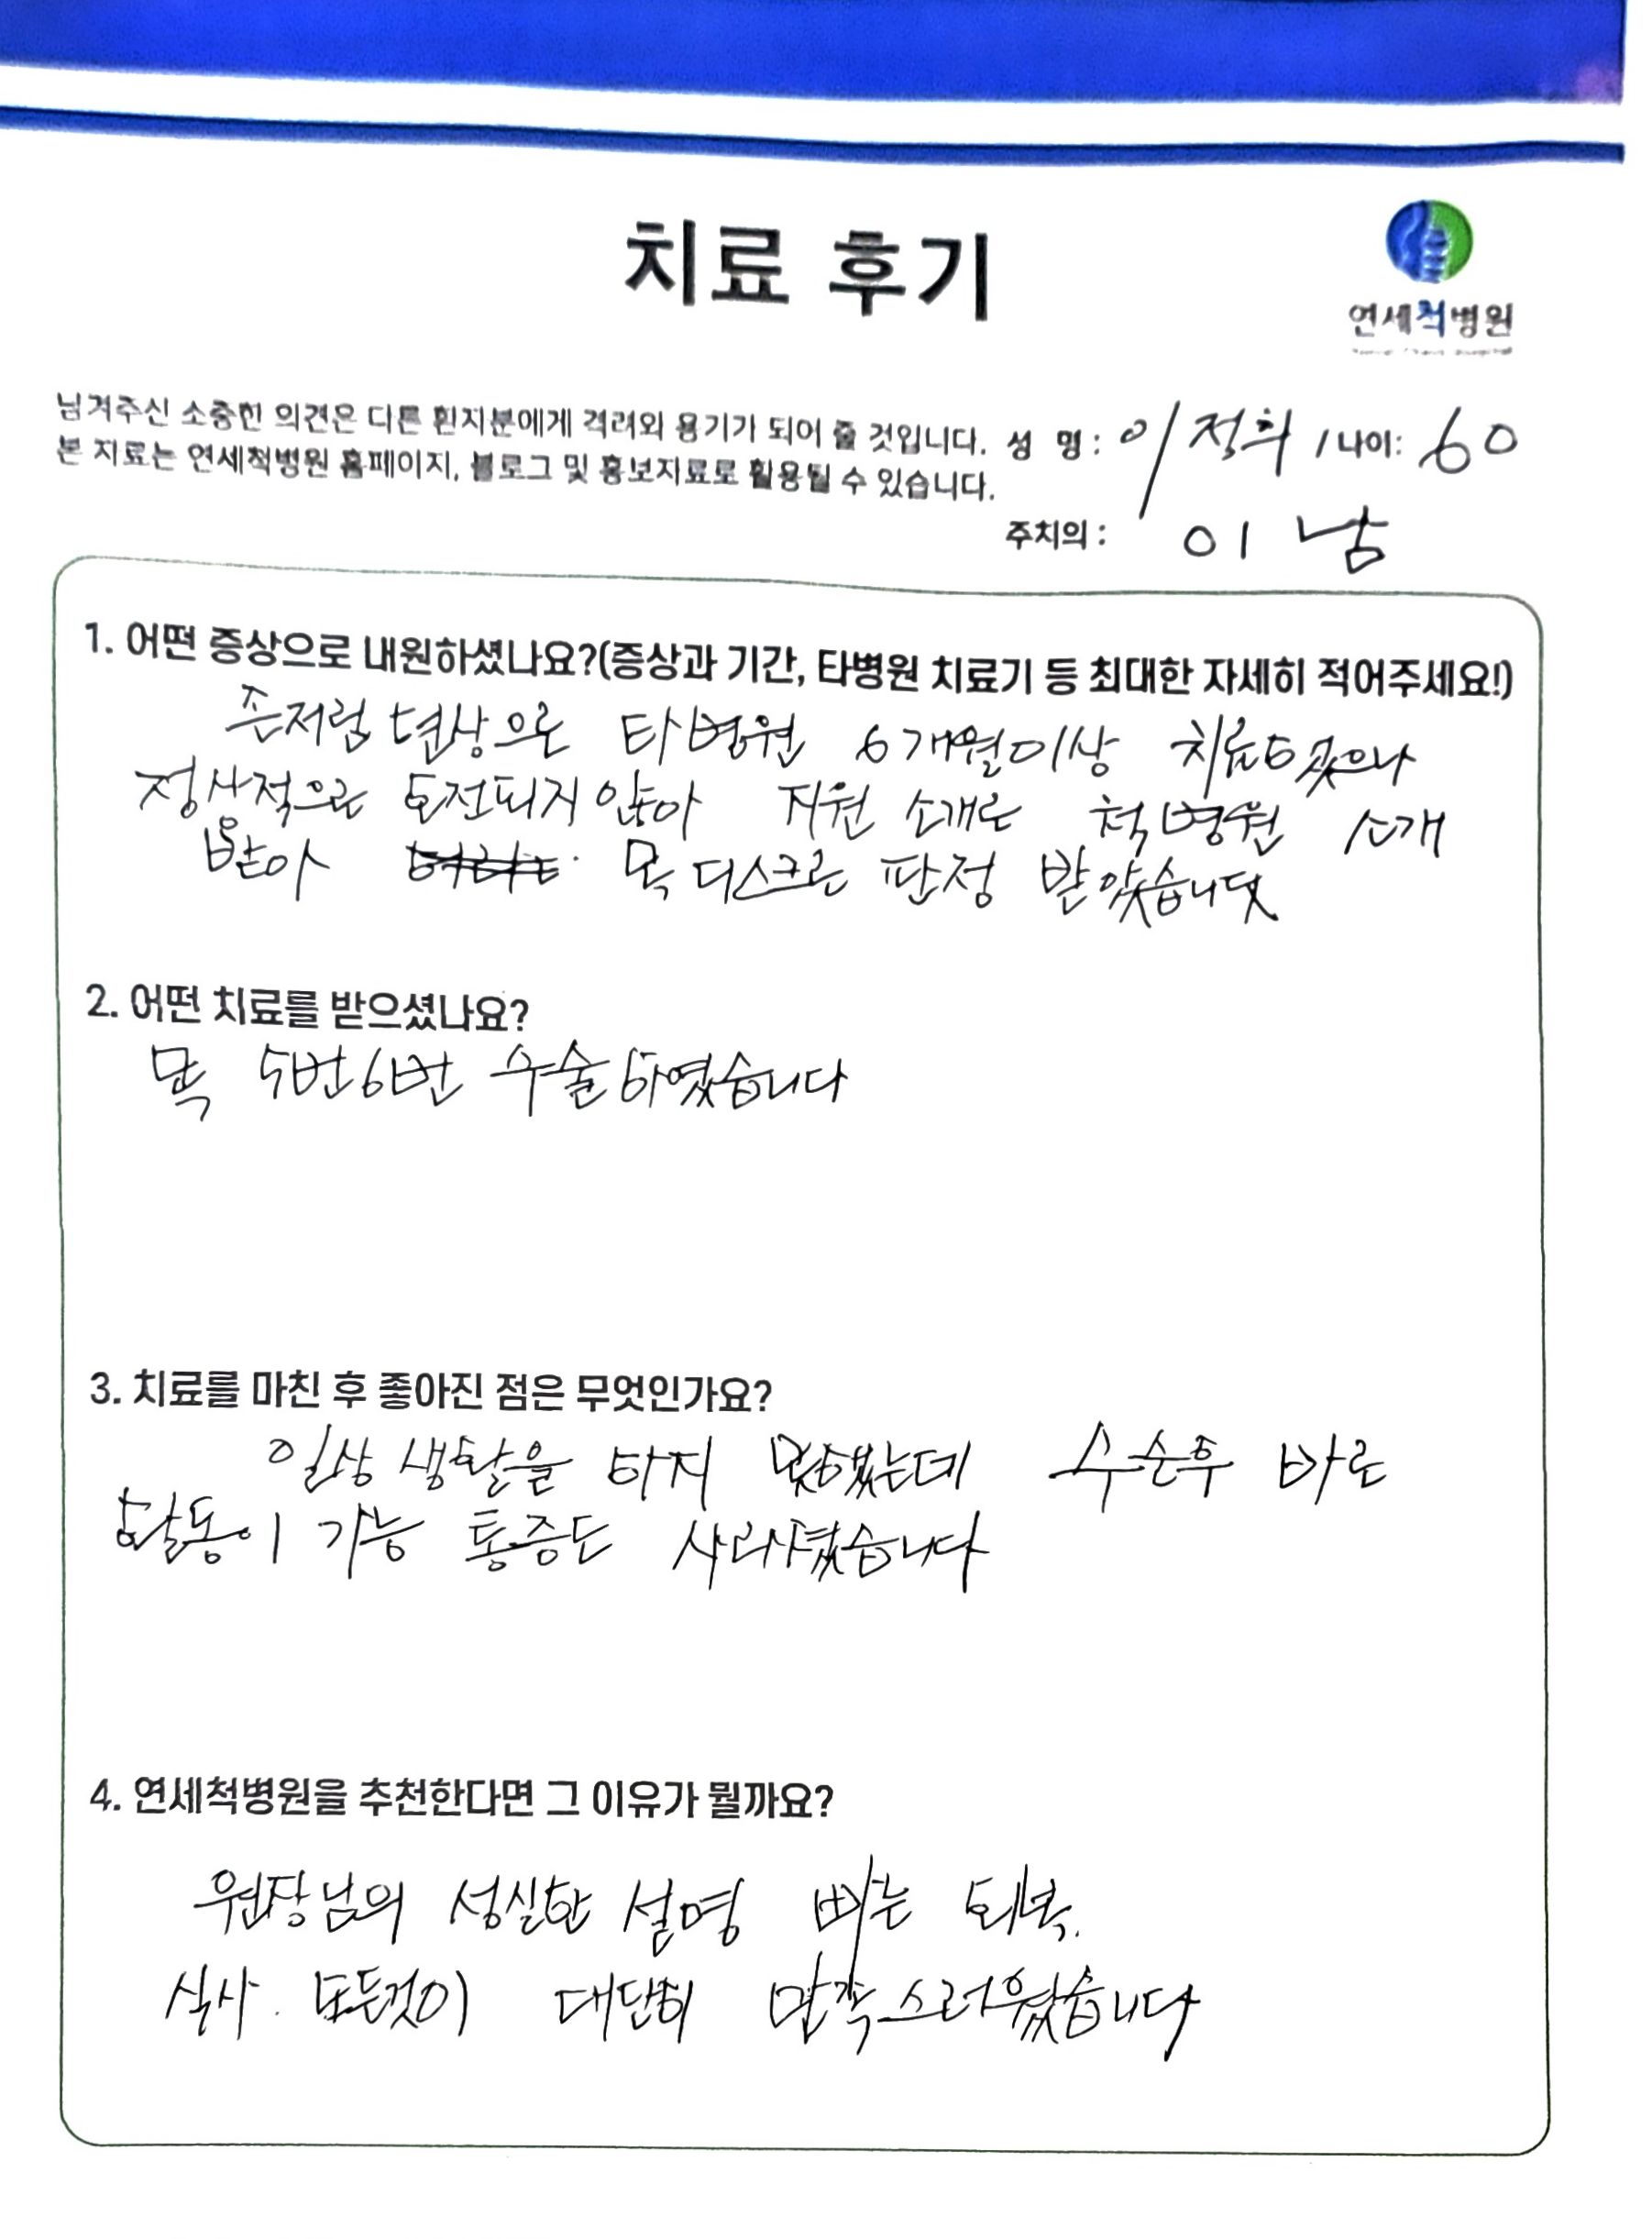 치료 후기
연세척병원
남겨주신 소중한 의견은 다른 환자분에게 격려와 용기가 되어 줄 것입니다. 성 명: 이정희 / 나이: 60
본 자료는 연세척병원 홈페이지, 블로그 및 홍보자료로 활용될 수 있습니다.
주치의: 이남
1. 어떤 증상으로 내원하셨나요?(증상과 기간, 타병원 치료기 등 최대한 자세히 적어주세요!)
손저림 현상으로 타병원 6개월이상 치료하였으나
정상적으로 호전되지 않아 직원 소개로 척병원 소개
받아 목디스크로 판정 받았습니다
2. 어떤 치료를 받으셨나요?
목 5번6번 수술하였습니다
3. 치료를 마친 후 좋아진 점은 무엇인가요?
일상 생활을 하지 못했는데 수술후 바로
활동이 가능 통증도 사라졌습니다
4. 연세척병원을 추천한다면 그 이유가 뭘까요?
원장님의 성실한 설명 빠른 회복.
식사. 모든것이 대단히 만족스러웠습니다